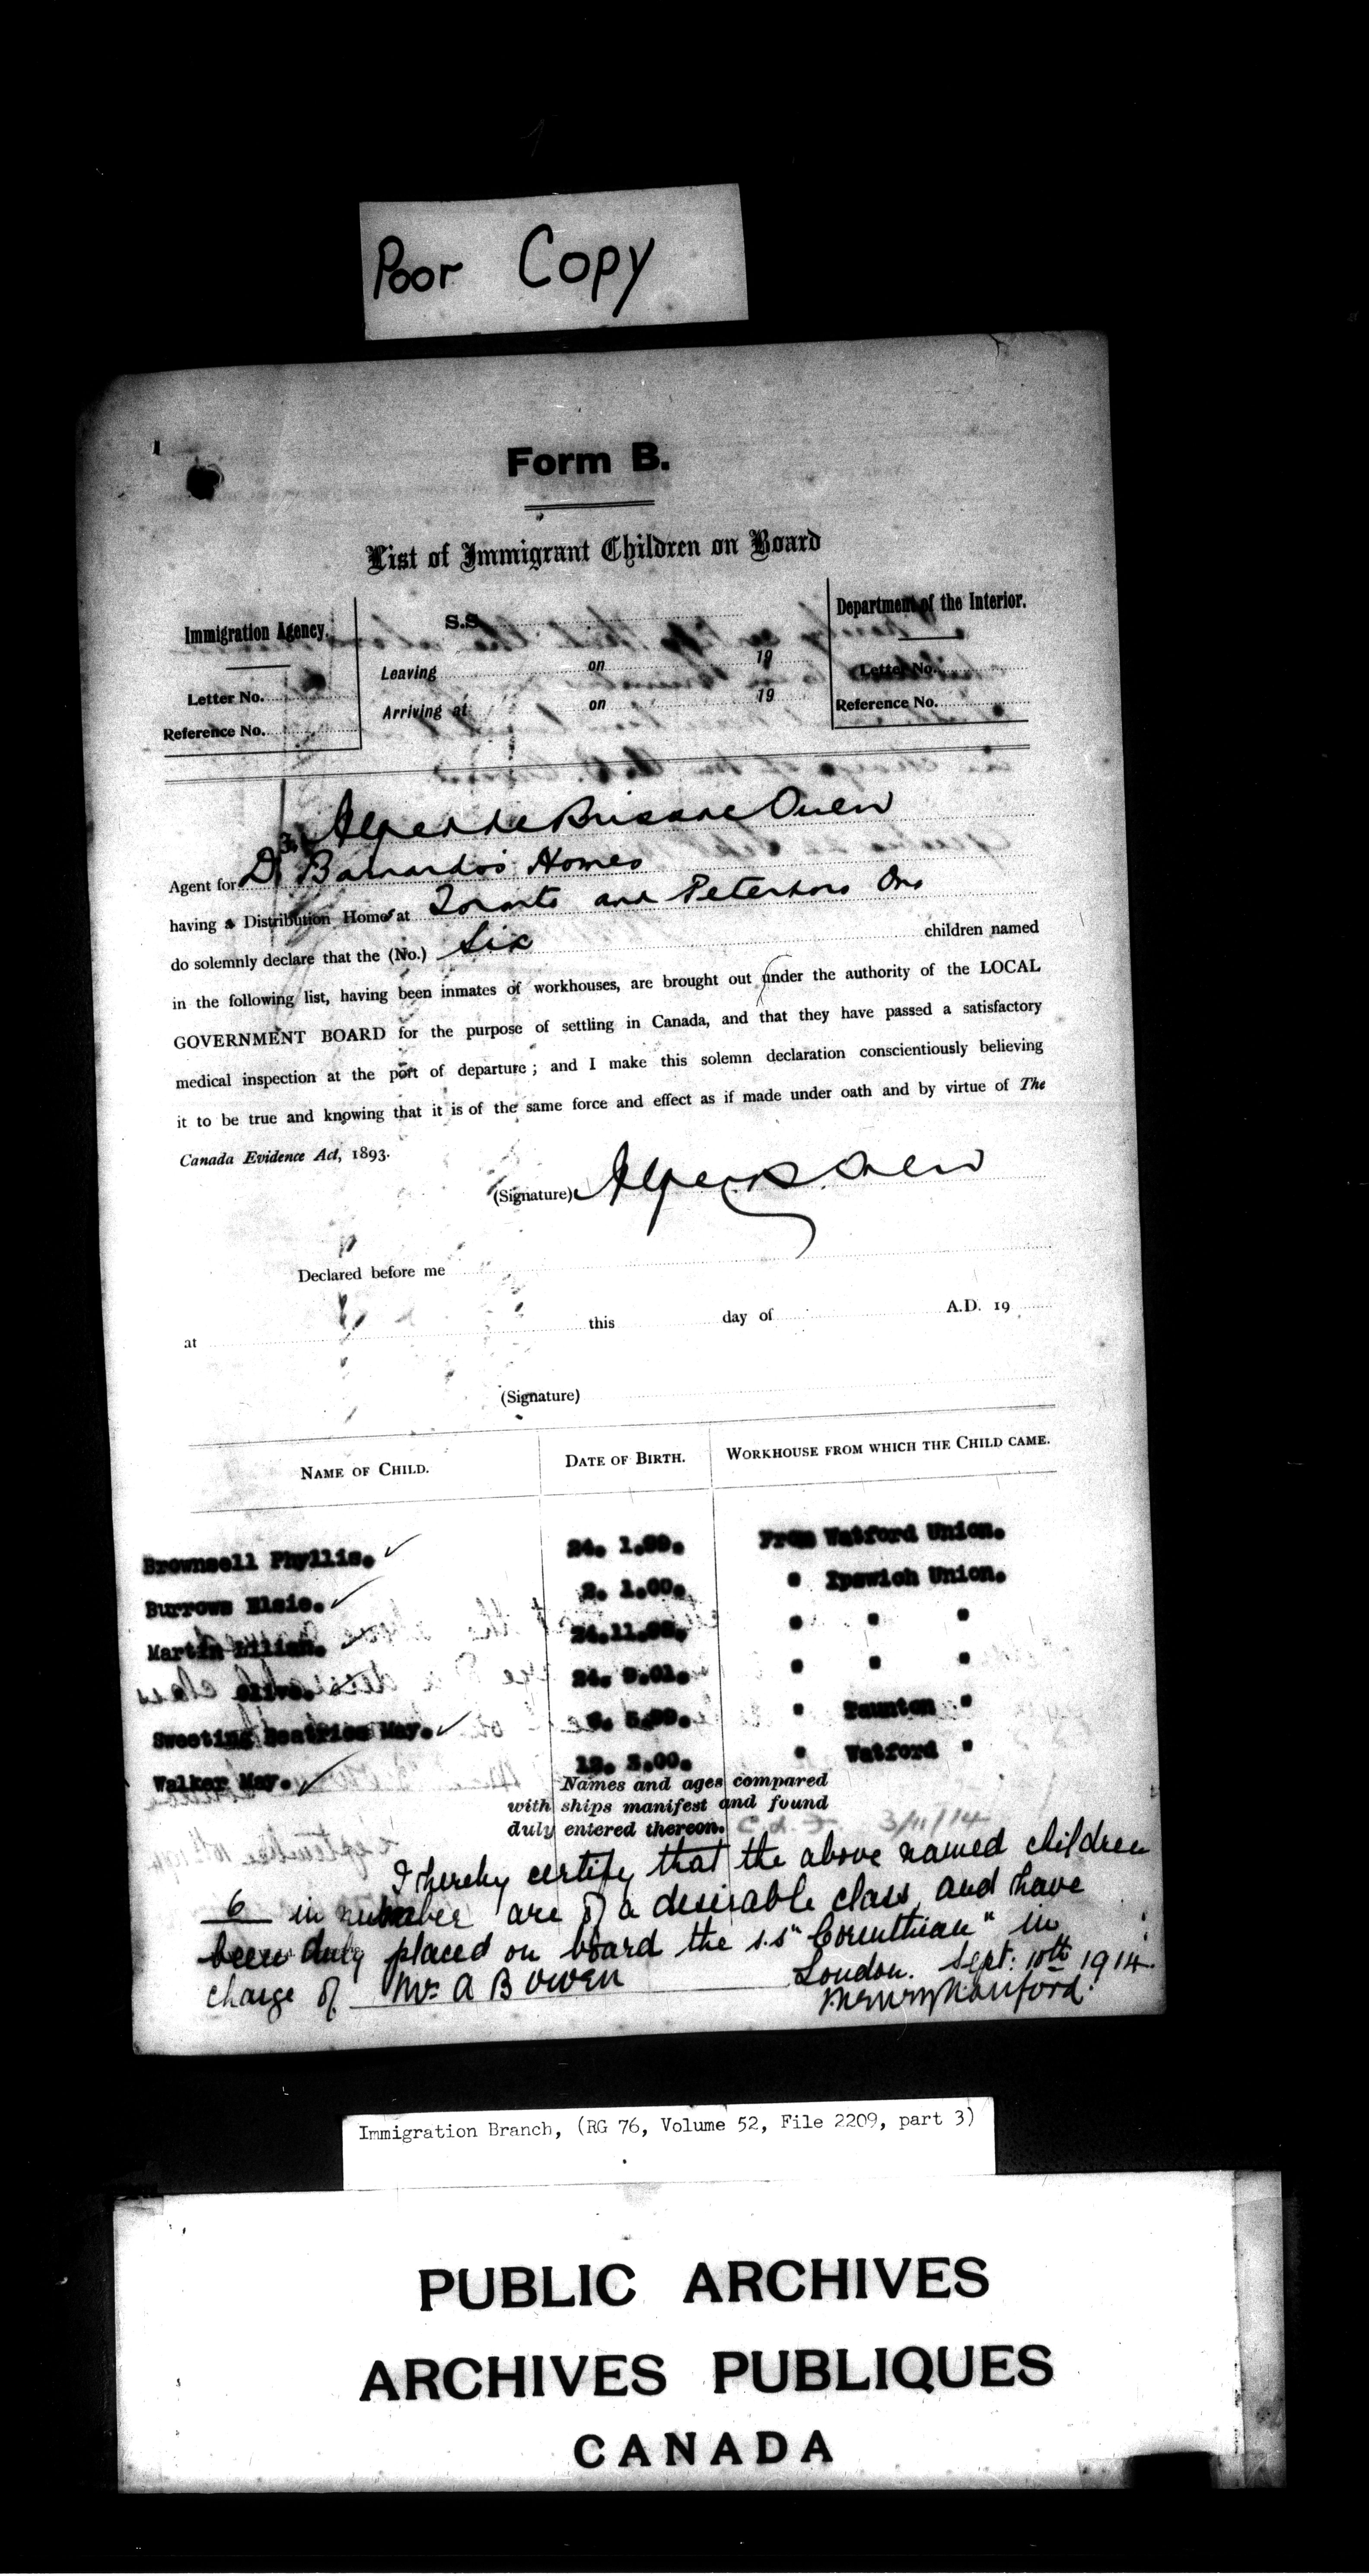 Poor Copy
Form B.
List of Immigrant Children on Board
Immigration Agency.
Letter No.
Reference No.
S.S.
Leaving on 19
Arriving at on 19
Department of the Interior.
Letter No.
Reference No.
Owen
Agent for Dr Barnardo's Homes
having a Distribution Home at Toronto and Peterboro Ono
do solemnly declare that the (No.) Six children named
in the following list, having been inmates of workhouses, are brought out under the authority of the LOCAL
GOVERNMENT BOARD for the purpose of settling in Canada, and that they have passed a satisfactory
medical inspection at the port of departure; and I make this solemn declaration conscientiously believing
it to be true and knowing that it is of the same force and effect as if made under oath and by virtue of The
Canada Evidence Act, 1893.
(Signature) Owen
Declared before me
at this day of A.D. 19
(Signature)
NAME OF CHILD. DATE OF BIRTH. WORKHOUSE FROM WHICH THE CHILD CAME.
Brownsell Phyllis. 24. 1. From Watford Union.
Burrows Elsie. 2. 1.00. " Ipswich Union.
Martin Lilian. 24.11. " " "
Olive. 24. " " "
Sweeting Beatrice May. " Taunton "
Walker May. .00. " Watford "
Names and ages compared
with ships manifest and found
duly entered thereon. 3/11/14
I hereby certify that the above named children
6 in number are of a desirable class, and have
been duly placed on board the s.s "Corinthian" in
charge of Mr A B Owen London. Sept: 10th 1914.
Immigration Branch, (RG 76, Volume 52, File 2209, part 3)
PUBLIC ARCHIVES
ARCHIVES PUBLIQUES
CANADA